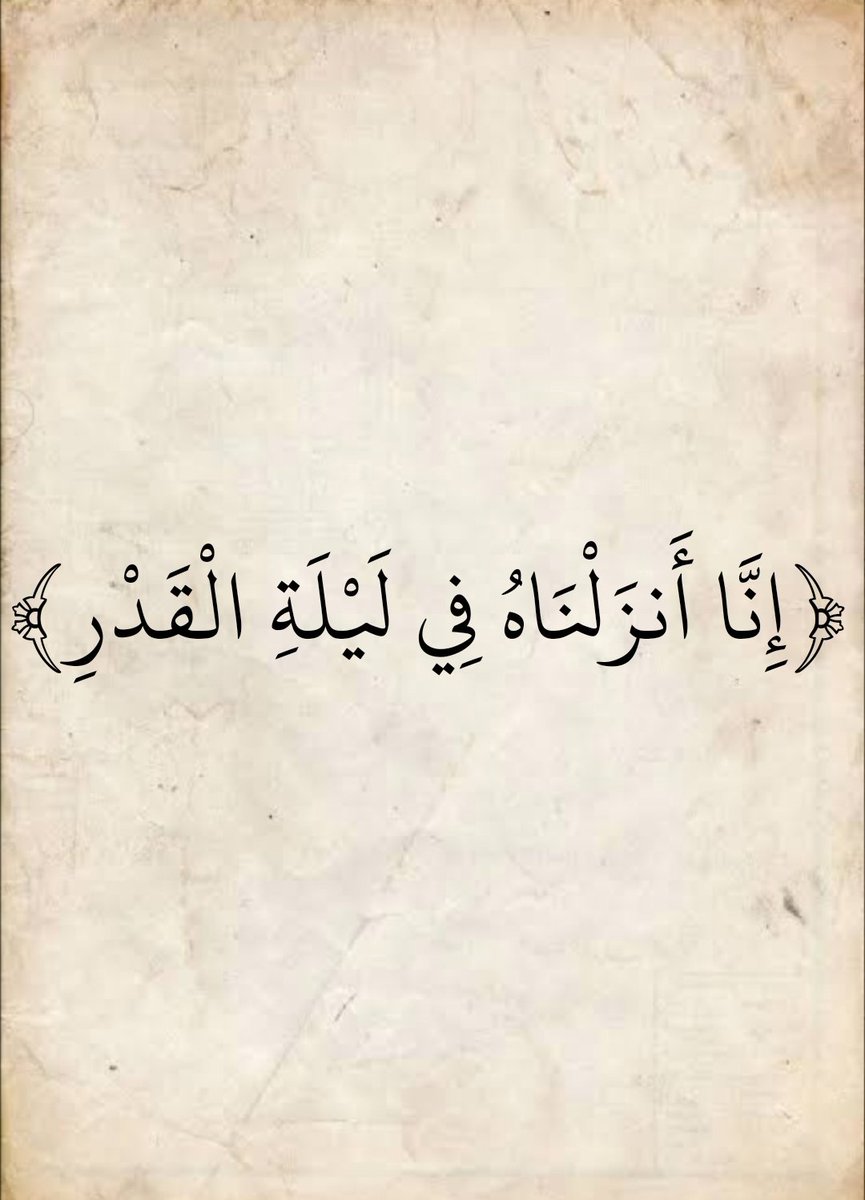 ﴿إِنَّا أَنزَلْنَاهُ فِي لَيْلَةِ الْقَدْرِ﴾